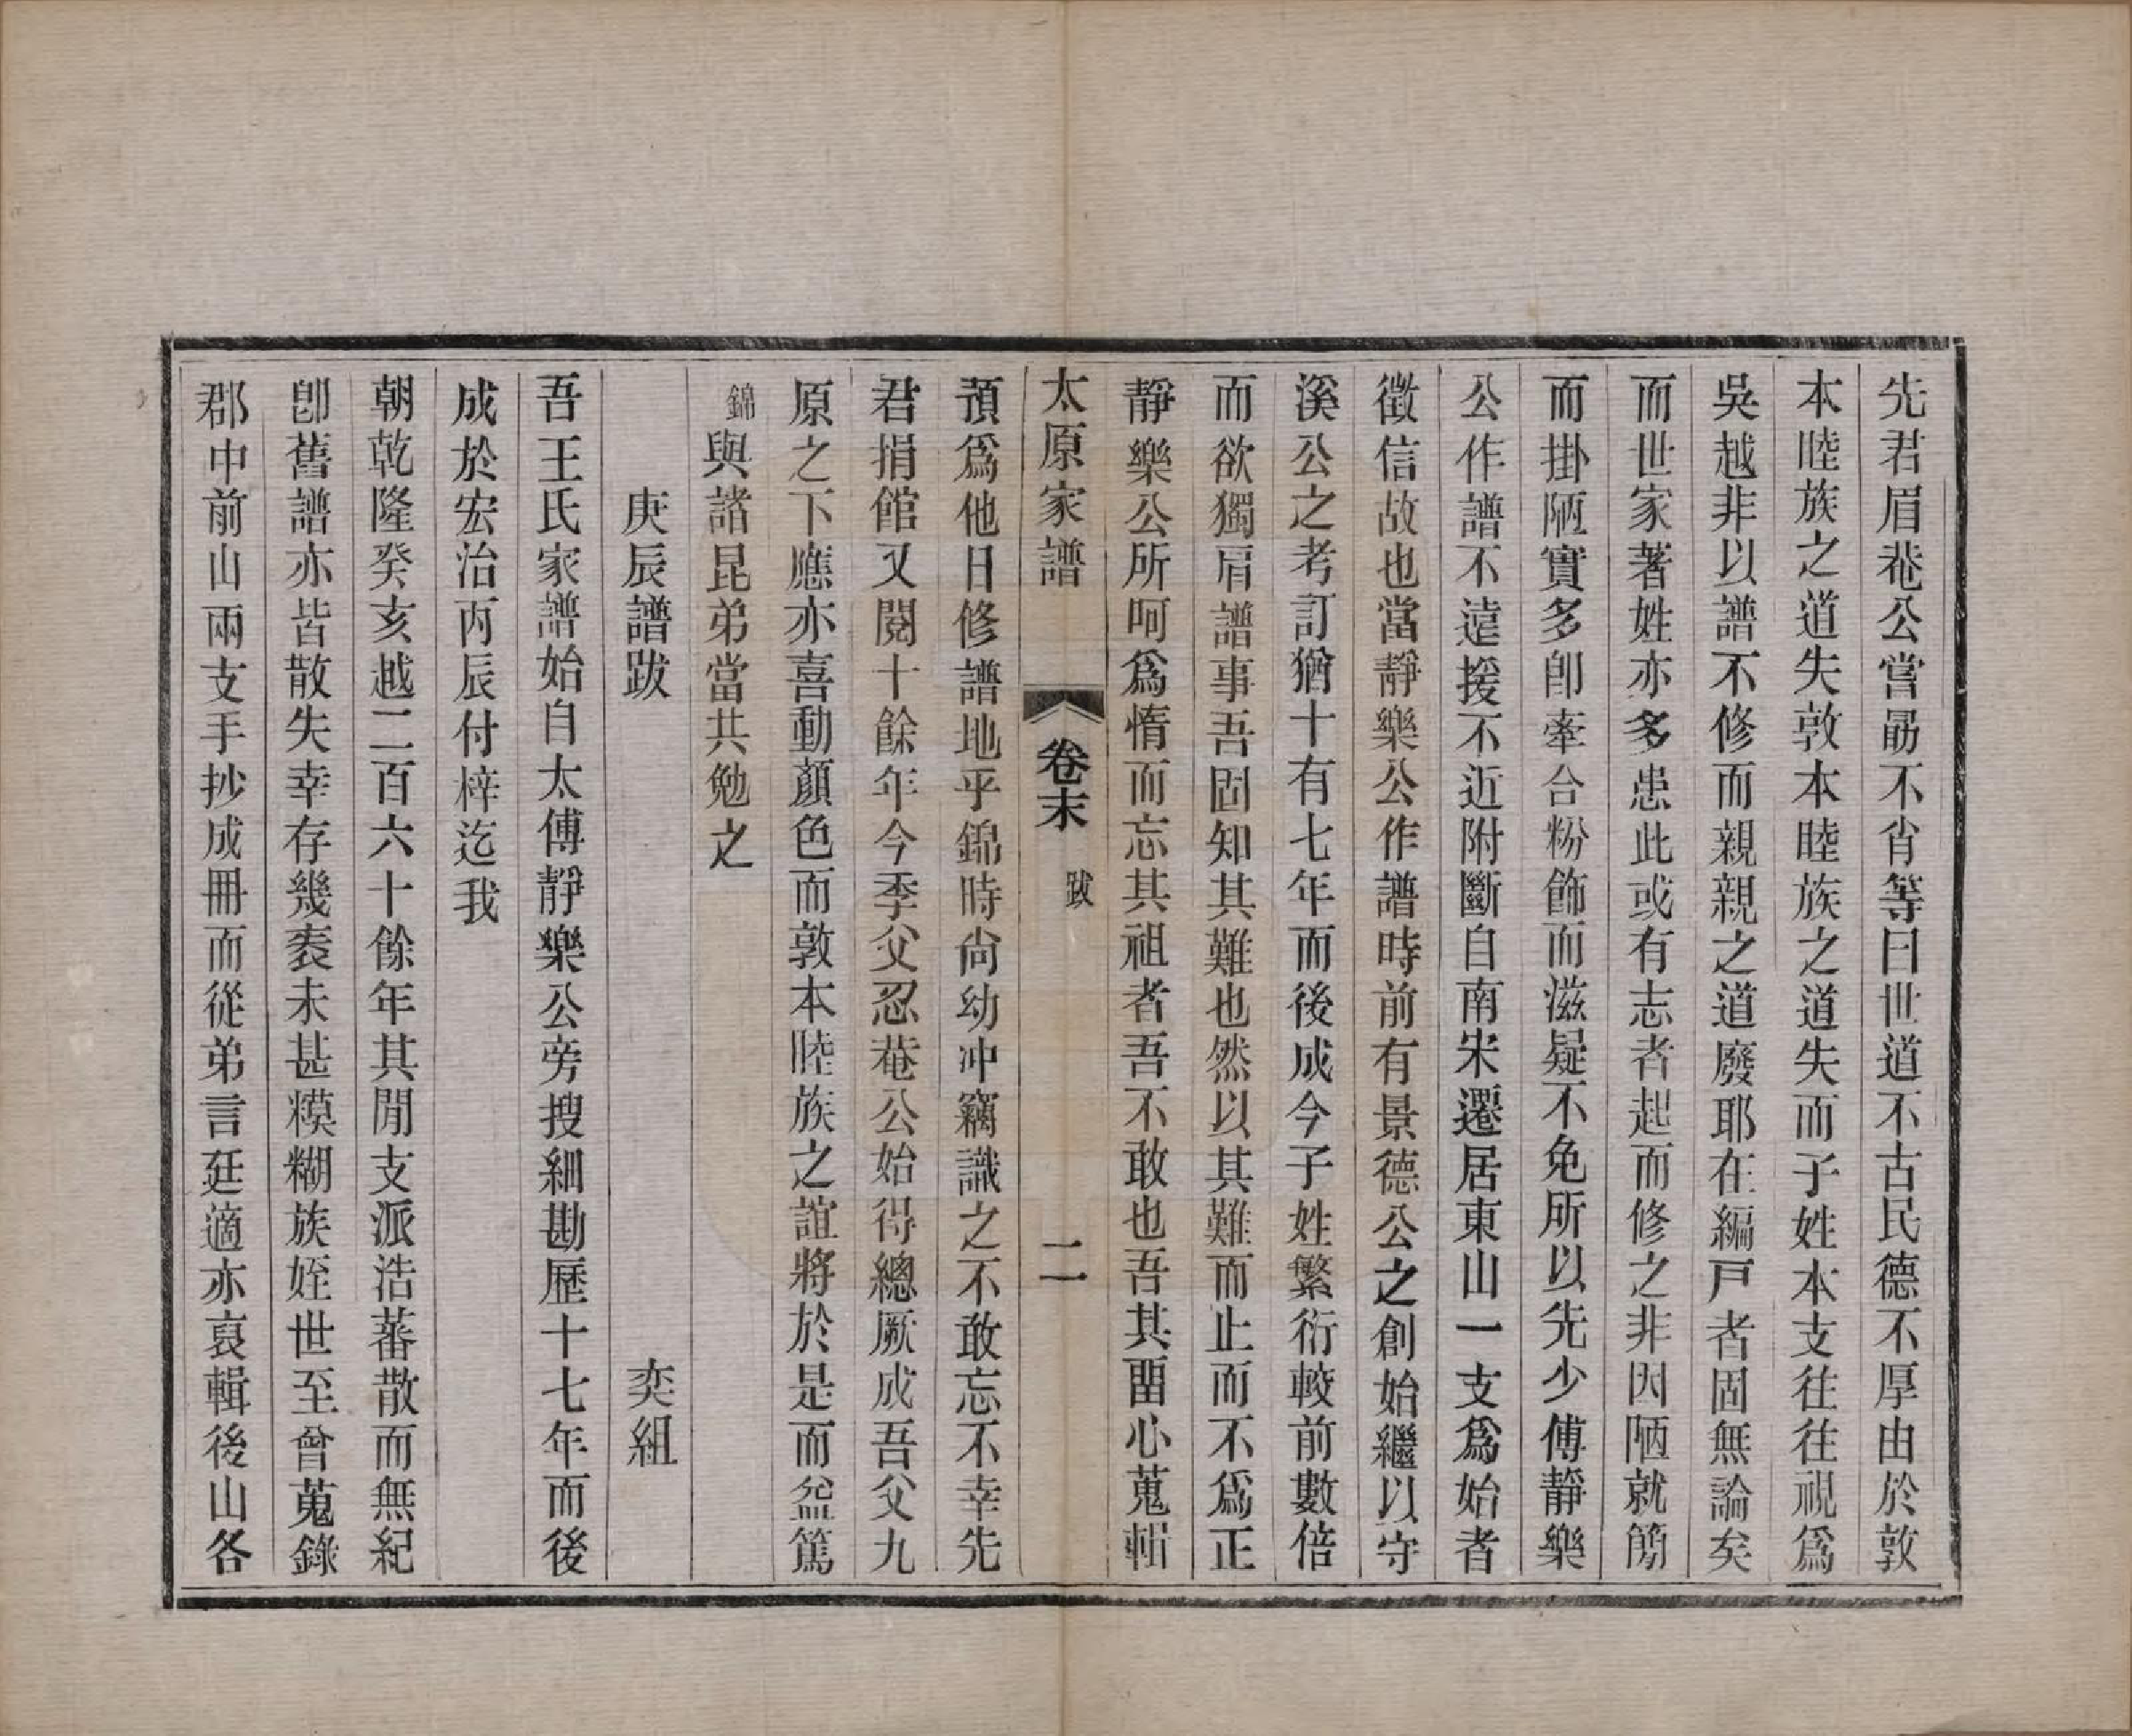 先君眉菴公嘗勗不肖等曰世道不古民德不厚由於敦
本睦族之道失敦本睦族之道失而子姓本支往往視爲
吳越非以譜不修而親親之道廢耶在編戸者固無論矣
而世家著姓亦多患此或有志者起而修之非因陋就簡
而掛陋實多卽牽合粉飾而滋疑不免所以先少傅靜樂
公作譜不遠援不近附斷自南宋遷居東山一支爲始者
徵信故也當靜樂公作譜時前有景德公之創始繼以守
溪公之考訂猶十有七年而後成今子姓繁衍較前數倍
而欲獨肩譜事吾固知其難也然以其難而止而不爲正
靜樂公所呵爲惰而忘其祖者吾不敢也吾其畱心蒐輯
太原家譜 卷末 跋 二
預爲他日修譜地乎錦時尙幼冲竊識之不敢忘不幸先
君捐館又閱十餘年今季父忍菴公始得總厥成吾父九
原之下應亦喜動顏色而敦本睦族之誼將於是而益篤
錦與諸昆弟當共勉之
庚辰譜跋 奕組
吾王氏家譜始自太傅靜樂公旁搜細勘歷十七年而後
成於宏治丙辰付梓迄我
朝乾隆癸亥越二百六十餘年其閒支派浩蕃散而無紀
卽舊譜亦皆散失幸存幾袠未甚糢糊族姪世至曾蒐錄
郡中前山兩支手抄成冊而從弟言廷適亦裒輯後山各